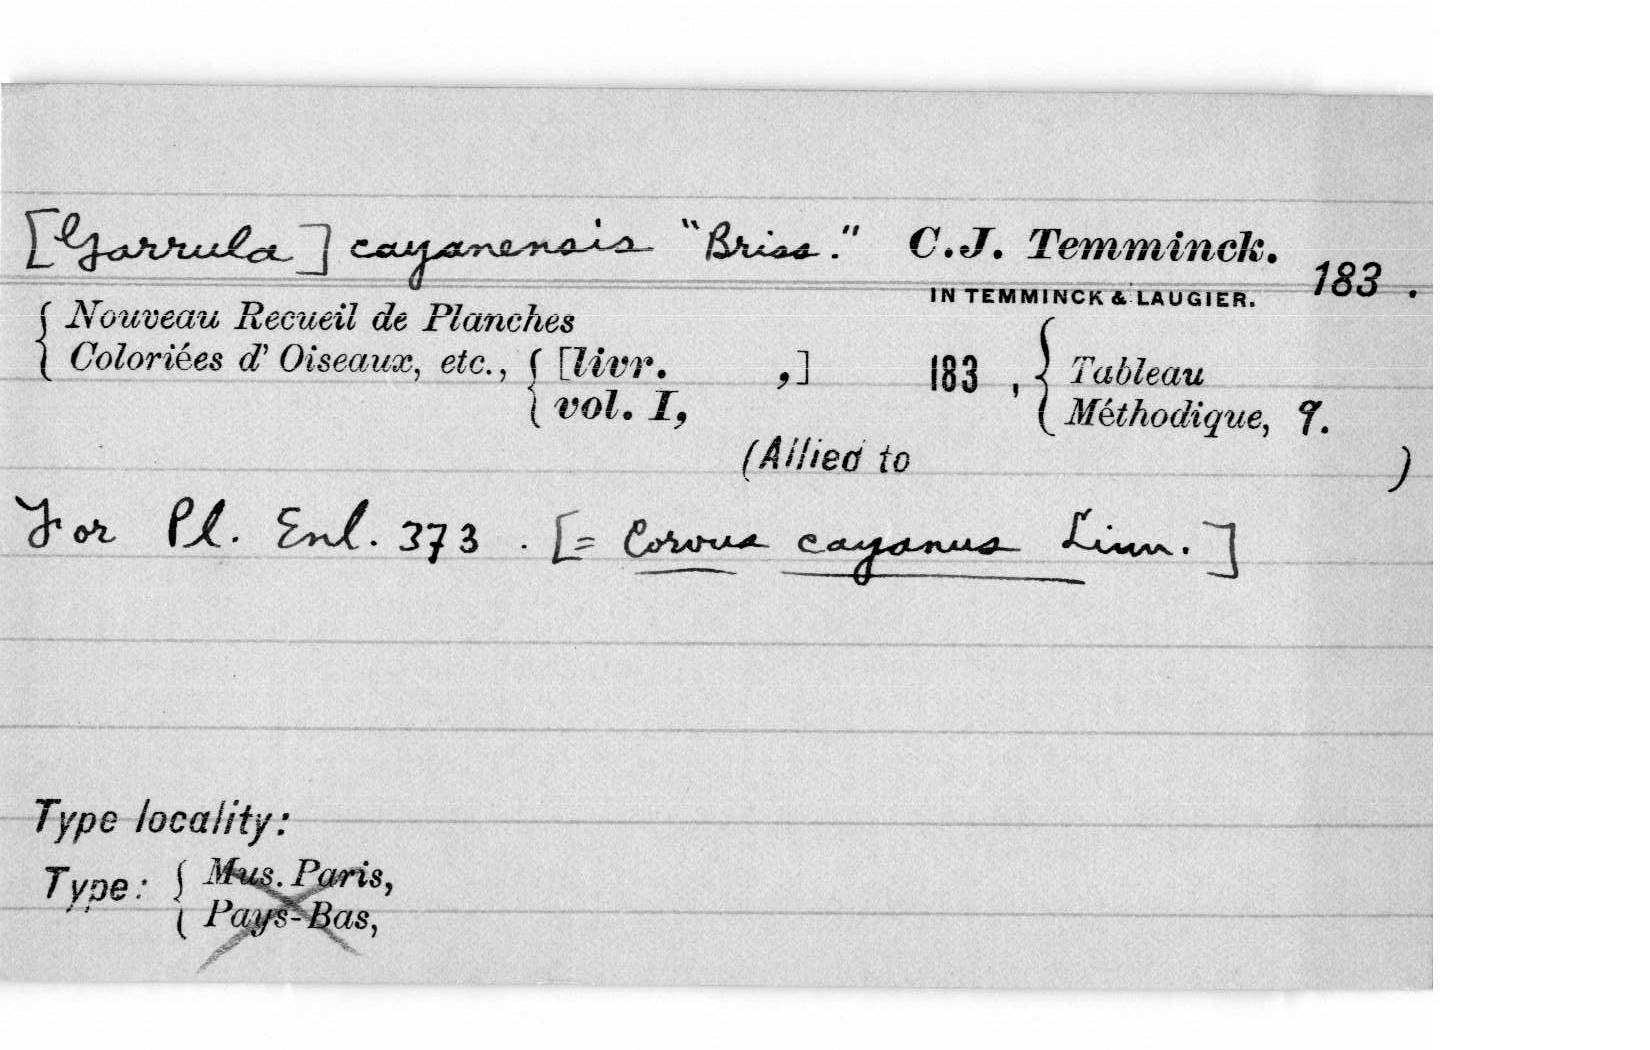 [Garrula] cayanensis "Briss." C.J. Temminck.
IN TEMMINCK & LAUGIER. 183 .
{ Nouveau Recueil de Planches
Coloriées d' Oiseaux, etc., { [livr. ,] 183 , { Tableau
vol. I, Méthodique, 9.
(Allied to )
For Pl. Enl. 373 . [= Corvus cayanus Linn.]
Type locality:
Type: { Mus. Paris,
Pays-Bas,